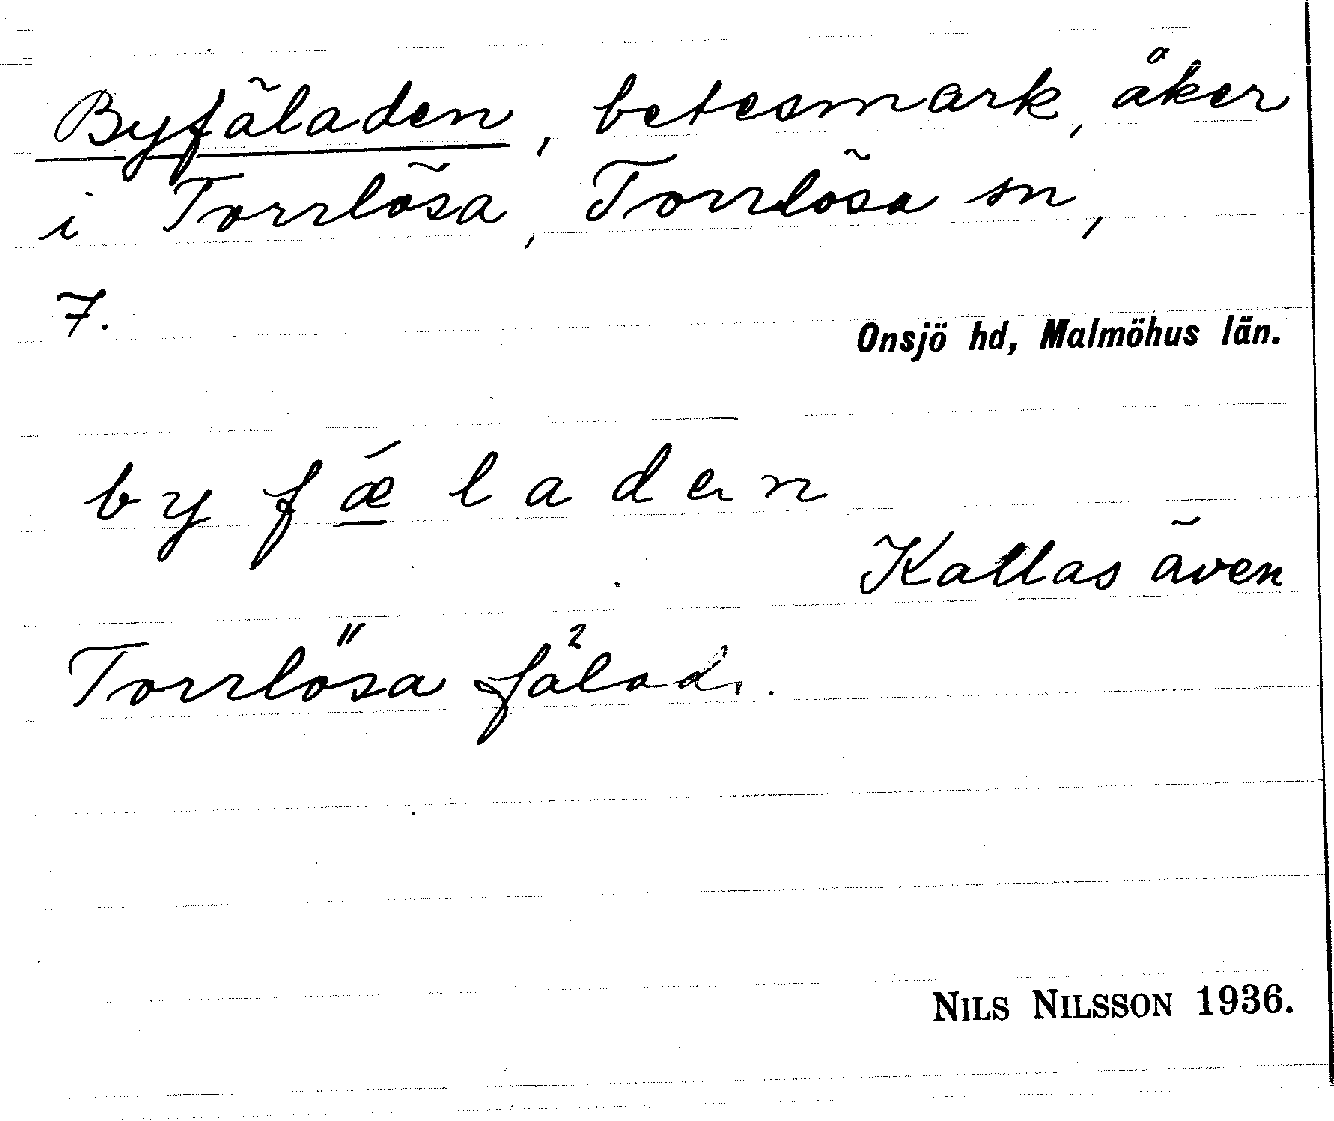 Byfäladen, betesmark, åker
i Torrlösa, Torrlösa sn,
7.
Onsjö hd, Malmöhus län.
by fǽ laden
Kallas även
Torrlösa fälad.
NILS NILSSON 1936.